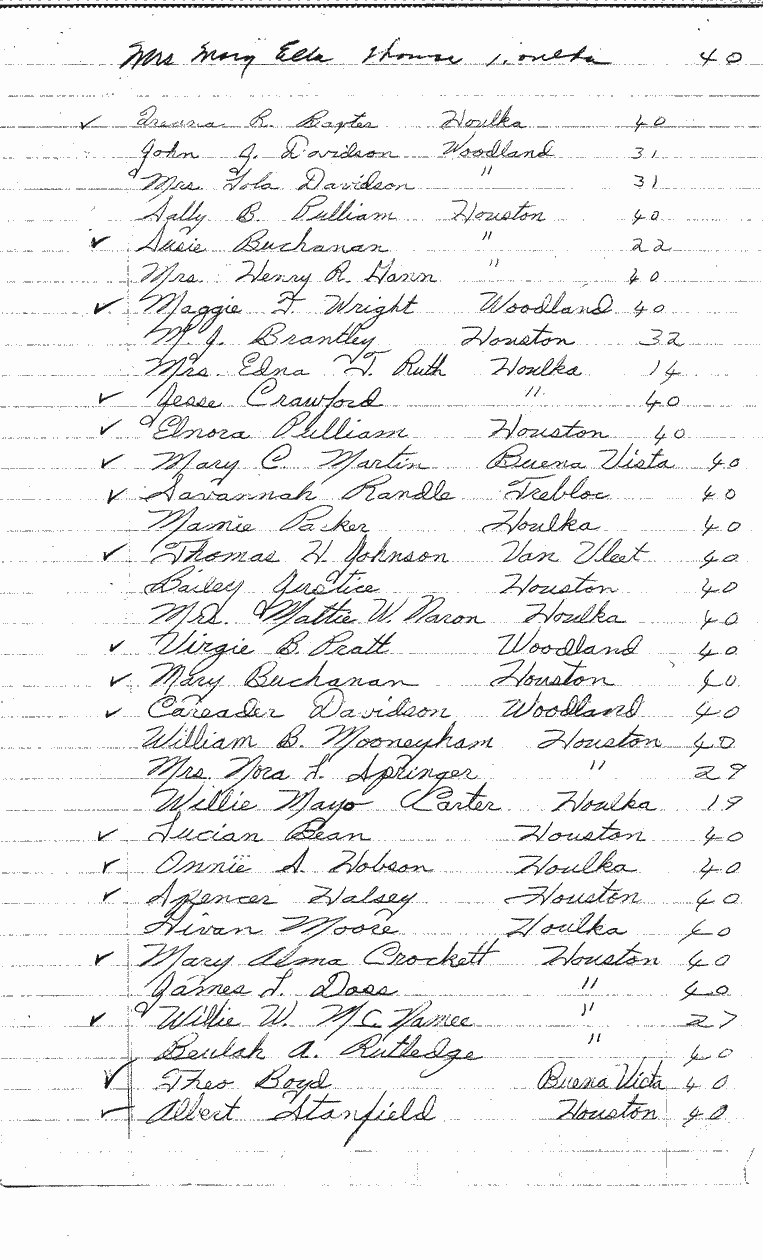 Mrs Mary Ella Thomas Houlka 40
✓ R. Baxter Houlka 40
John J. Davidson Woodland 31
Mrs. Lola Davidson " 31
Sally B. Pulliam Houston 40
✓ Susie Buchanan " 22
Mrs. Henry R. Hann " 40
✓ Maggie F. Wright Woodland 40
M. J. Brantley Houston 32
Mrs. Edna F. Ruth Houlka 14
✓ Jesse Crawford " 40
✓ Elnora Pulliam Houston 40
✓ Mary C. Martin Buena Vista 40
✓ Savannah Randle Trebloc 40
Mamie Parker Houlka 40
✓ Thomas H. Johnson Van Vleet 40
Bailey Justice Houston 40
Mrs. Mattie W. Naron Houlka 40
✓ Virgie B. Pratt Woodland 40
✓ Mary Buchanan Houston 40
✓ Careader Davidson Woodland 40
William B. Mooneyham Houston 40
Mrs. Nora L. Springer " 29
Willie Mayo Carter Houlka 19
✓ Lucian Bean Houston 40
✓ Onnie S. Hobson Houlka 40
✓ Spencer Halsey Houston 40
Hivan Moore Houlka 40
✓ Mary Alma Crockett Houston 40
James L. Doss " 40
✓ Willie W. McNamee " 27
Beulah A. Rutledge " 40
✓ Theo Boyd Buena Vista 40
✓ Albert Stanfield Houston 40